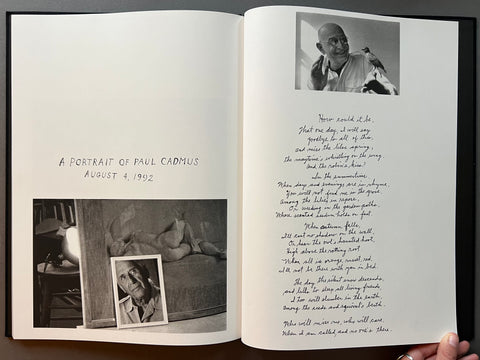 A PORTRAIT OF PAUL CADMUS
AUGUST 4, 1992
How could it be,
That one day, I will say
goodbye to all of this,
and miss the lilac spring,
the songbirds whistling on the wing,
And the robin's kiss?
In the summertime,
When days and evenings are in rhyme,
You will not find me in the grove,
Among the lilies in repose,
Or weeding in the garden paths,
Whose scented kingdom holds so fast.
When autumn falls,
I'll cast no shadow on the wall,
Or hear the owl's haunted hoot,
High above the rotting root.
When all is orange, russet, red,
I'll not be there with you in bed.
The day the silent snow descends,
and lulls to sleep all living friends,
I too will slumber in the earth,
Among the seeds and squirrel's
Who will miss me, who will care,
When I am called, and no one's there.